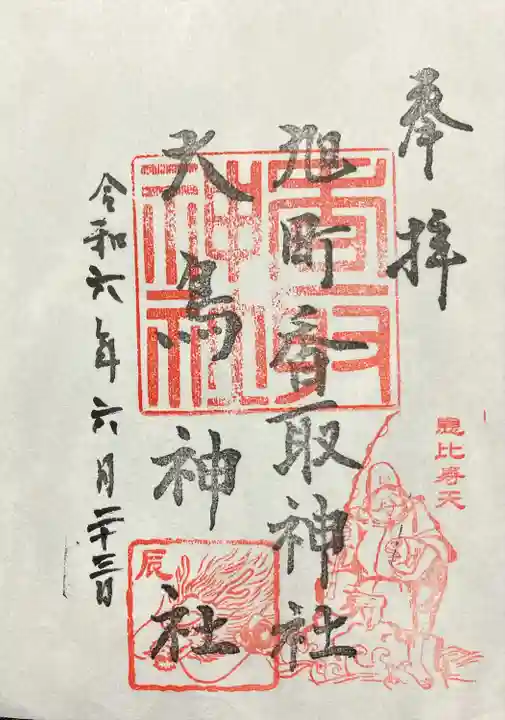 奉拝
恵比寿天
旭町香取神社
香取神社
大鳥神社
辰
令和六年六月二十三日